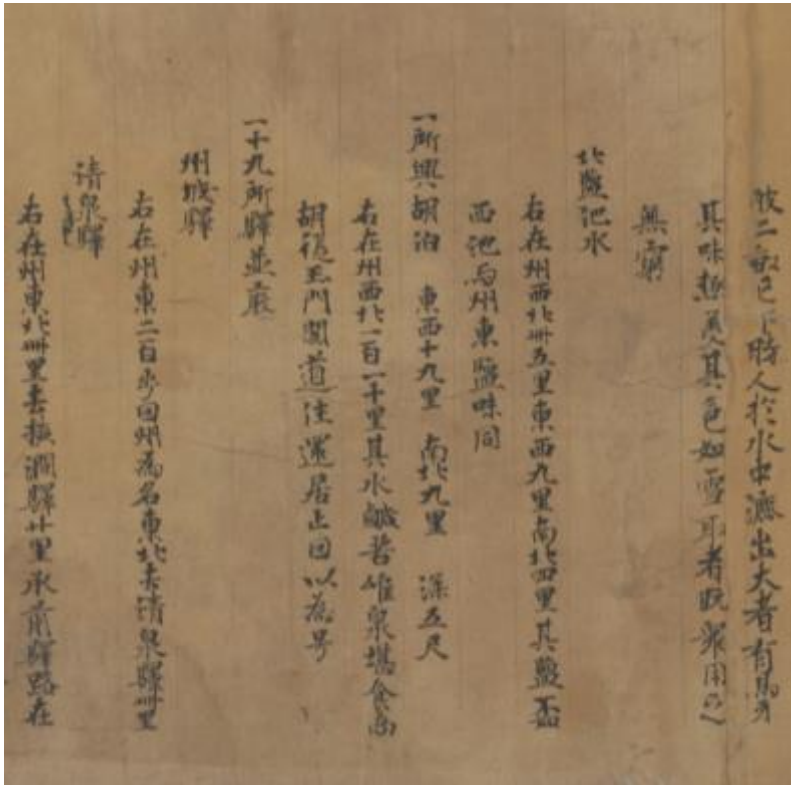 陂二畝已下時人於水中漉出大者有馬牙
其味極美其色如雪取者既衆用之
無窮
北鹽池水
右在州西北卌五里東西九里南北四里其鹽不如
西池与州東鹽味同
一所興胡泊 東西十九里 南北九里 深五尺
右在州西北一百一十里其水鹹苦唯泉堪食商
胡從玉門関道往還居止因以為号
一十九所驛並廢
州城驛
右在州東二百步因州為名東北去清泉驛卌里
清泉驛
右在州東北卌里去横澗驛廿里承前驛路在